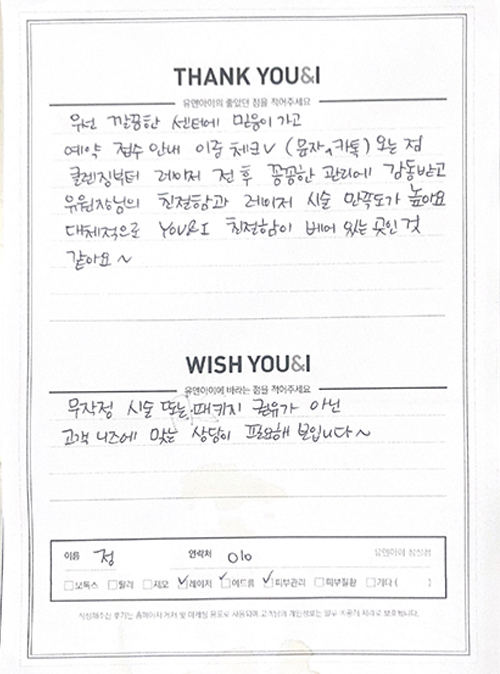 THANK YOU&I
유앤아이의 좋았던 점을 적어주세요
우선 깔끔한 센터에 믿음이 가고
예약 접수 안내 이중 체크V (문자,카톡) 오는 점
클렌징부터 레이저 전 후 꼼꼼한 관리에 감동받고
유원장님의 친절함과 레이저 시술 만족도가 높아요
대체적으로 YOU&I 친절함이 베어 있는 곳인 것
같아요~
WISH YOU&I
유앤아이에 바라는 점을 적어주세요
무작정 시술 또는 패키지 권유가 아닌
고객 니즈에 맞는 상담이 필요해 보입니다~
이름 정 연락처 010 유앤아이 잠실점
보톡스 필러 제모 레이저 여드름 피부관리 피부질환 기타 ( )